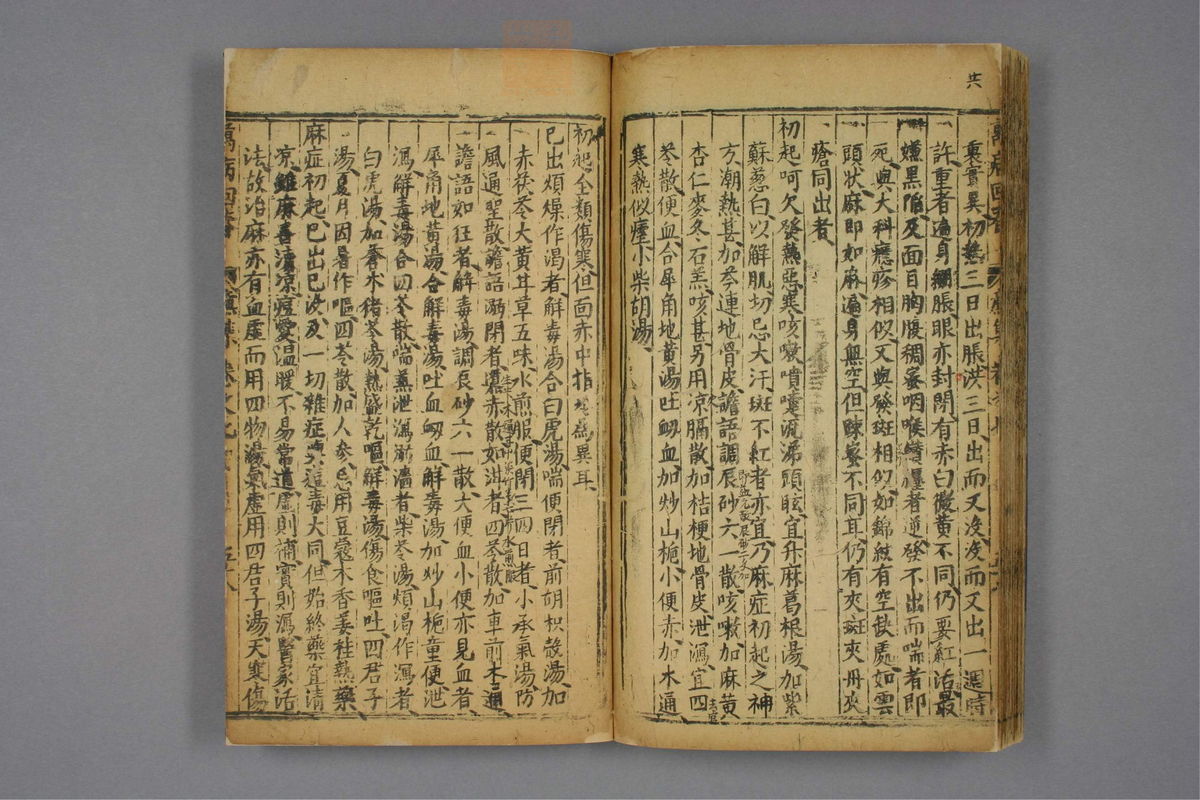 裏實異初熱三日出脹洪三日出而又沒沒而又出一週時
許重者遍身綳脹眼亦封閉有赤白微黃不同仍要紅活最
嫌黑陷及面目胸膈稠蜜咽喉纏者逆發不出而喘者即
死與大科癮疹相似又與發斑相似如錦紋有空缺處如雲
頭狀麻即如麻遍身無空但踈蜜不同耳仍有夾斑夾丹夾
瘡同出者
初起呵欠發熱惡寒咳嗽噴嚏流涕頭眩宜升麻葛根湯加紫
蘇葱白以解肌切忌大汗斑不紅者亦宜乃麻症初起之神
方潮熱甚加芩連地骨皮譫語調辰砂六一散咳嗽加麻黃
杏仁麥冬石羔咳甚另用凉膈散加桔梗地骨皮泄瀉宜四
苓散便血合犀角地黃湯吐衂血加炒山梔小便赤加木通
寒熱似瘧小柴胡湯
初起全類傷寒但面赤中指冷為異耳
已出煩燥作渴者解毒湯合白虎湯喘便閉者前胡枳殼湯加
赤茯苓大黃甘草五味水煎服便閉三四日者小承氣湯防
風通聖散譫語溺閉者導赤散如泔者四苓散加車前木通
譫語如狂者解毒湯調辰砂六一散大便血小便亦見血者
犀角地黃湯合解毒湯吐血衂血解毒湯加炒山梔童便泄
瀉解毒湯合四苓散喘兼泄瀉溺濇者柴苓湯煩渴作瀉者
白虎湯加蒼朮猪苓湯熱盛乾嘔解毒湯傷食嘔吐四君子
湯夏月因暑作嘔四苓散加人參忌用豆蔻木香姜桂熱藥
麻症初起巳出巳沒及一切雜症與痘毒大同但始終藥宜清
凉雖麻喜清凉痘愛溫暖不易常道虛則補實則瀉醫家活
法故治麻亦有血虛而用四物湯氣虛用四君子湯天寒傷
萬病回春